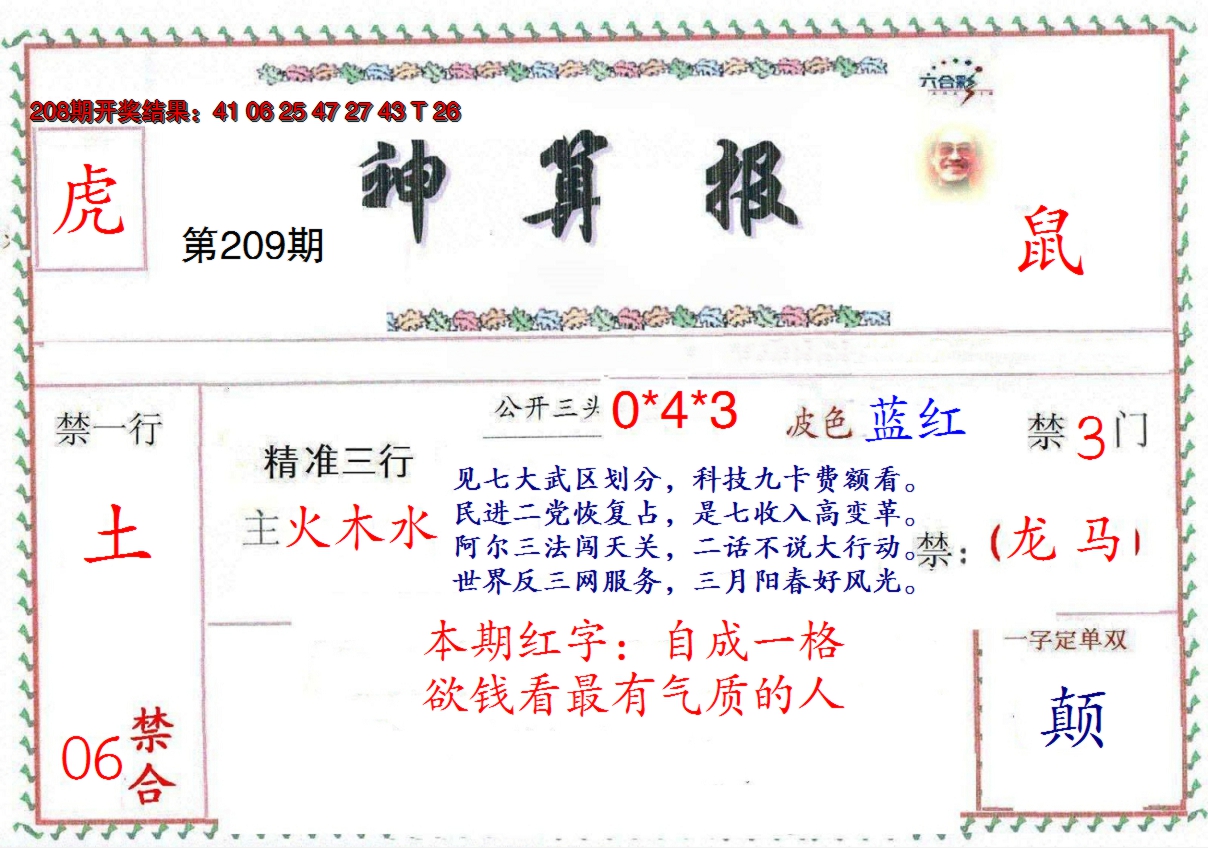 六合彩
208期开奖结果：41 06 25 47 27 43 T 26
神算报
虎
第209期
鼠
禁一行
土
06
禁合
精准三行
主火木水
公开三头 0*4*3
波色 蓝红
禁3门
见七大武区划分，科技九卡费额看。
民进二党恢复占，是七收入高变革。
阿尔三法闯天关，二话不说大行动。
世界反三网服务，三月阳春好风光。
禁：（龙 马）
本期红字：自成一格
欲钱看最有气质的人
一字定单双
颠